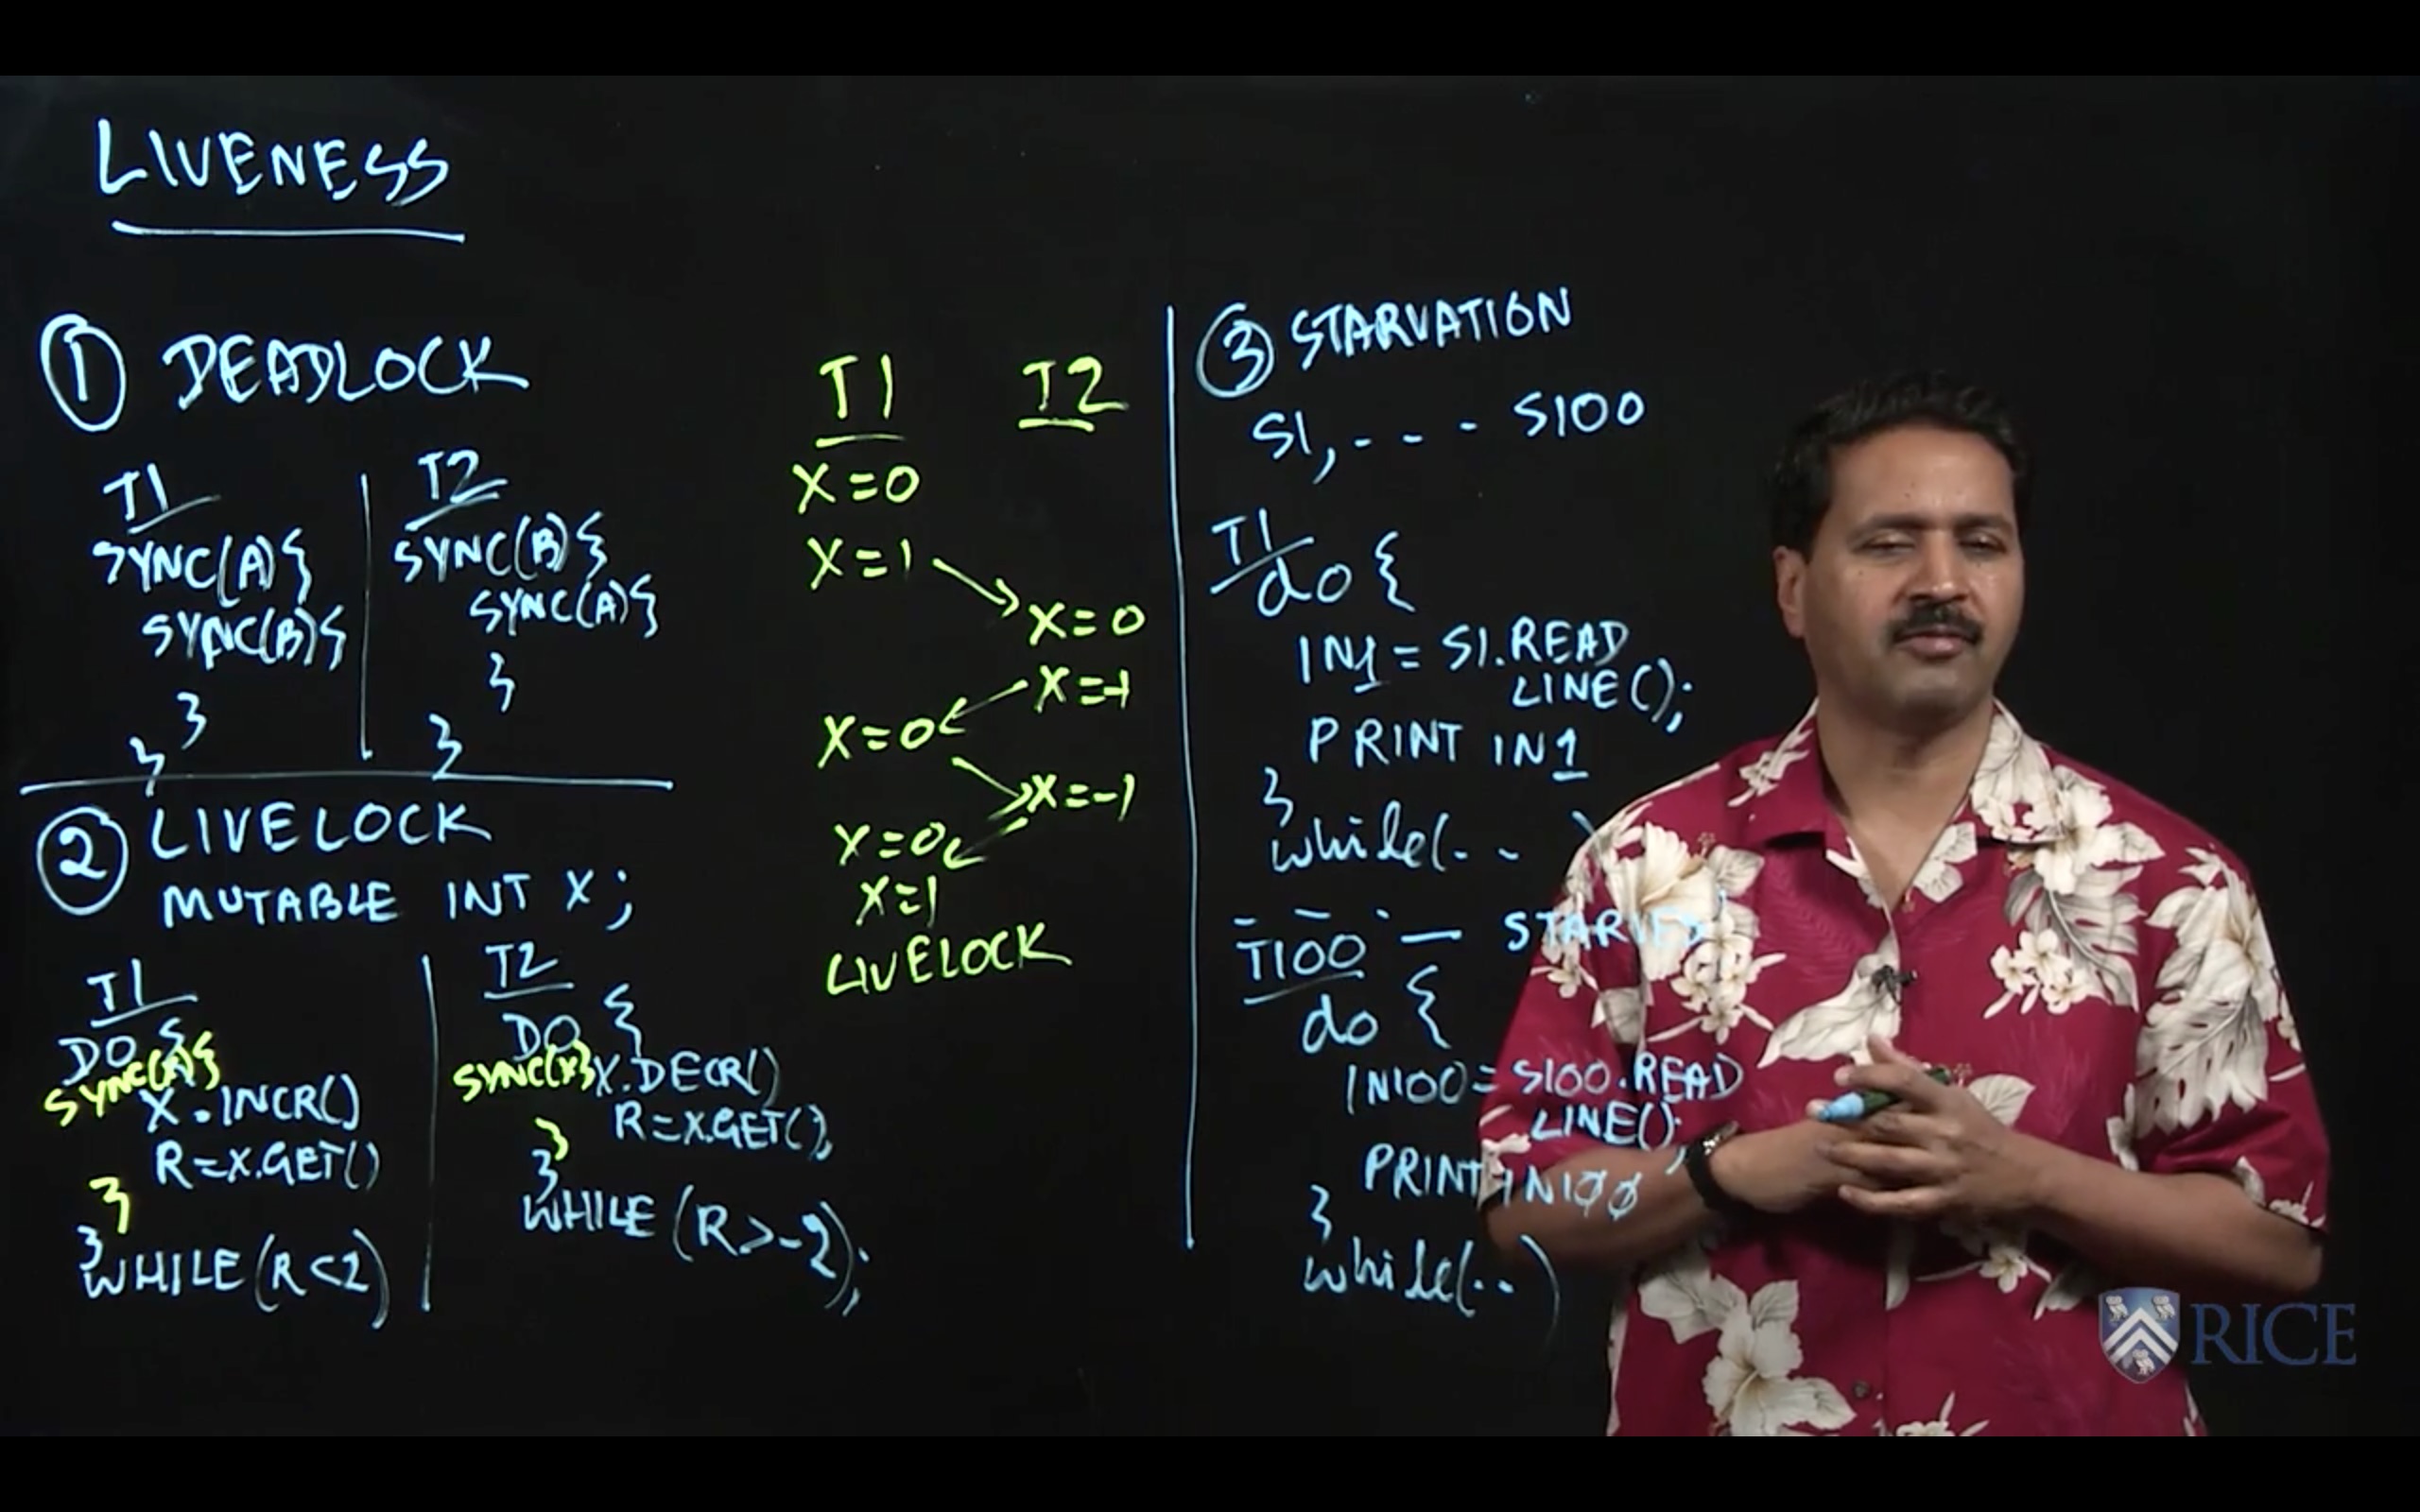 LIVENESS
① DEADLOCK
T1
SYNC(A){
SYNC(B){
}
}
T2
SYNC(B){
SYNC(A){
}
}
② LIVELOCK
MUTABLE INT X;
T1
DO {
SYNC(X){
X.INCR()
R=X.GET()
}
}
WHILE(R<2)
T2
DO {
SYNC(X){ X.DECR()
R=X.GET();
}
}
WHILE(R>-2);
T1 T2
X=0
X=1
X=0
X=-1
X=0
X=-1
X=0
X=1
LIVELOCK
③ STARVATION
S1,---- S100
T1
do {
IN1 = S1.READ
LINE();
PRINT IN1
}
while(.. )
T100 — STARVED
do {
IN100=S100.READ
LINE();
PRINT IN100
}
while(..)
RICE